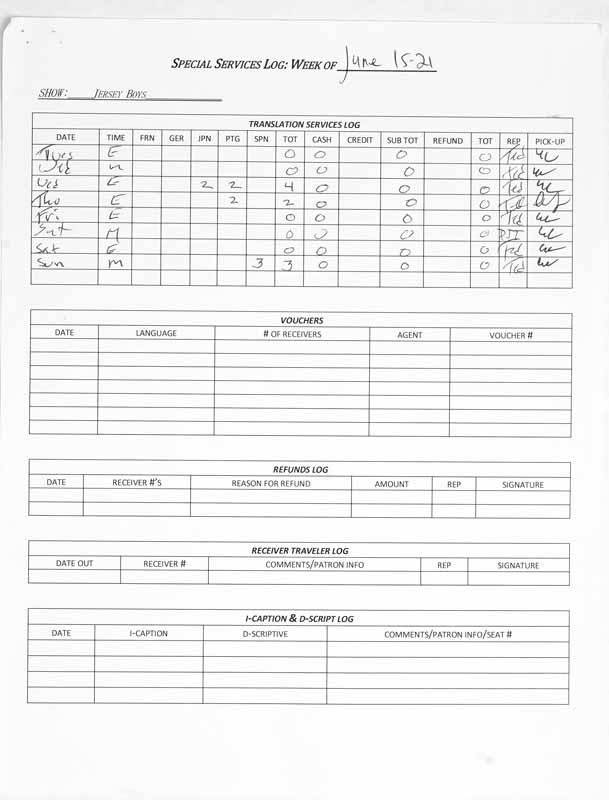 SPECIAL SERVICES LOG: WEEK OF June 15-21
SHOW: JERSEY BOYS
TRANSLATION SERVICES LOG
DATE TIME FRN GER JPN PTG SPN TOT CASH CREDIT SUB TOT REFUND TOT REP PICK-UP
Tues E 0 0 0 0 Ted
Wed m 0 0 0 0 Ted
Wed E 2 2 4 0 0 0 Ted
Thu E 2 2 0 0 0 Ted
Fri E 0 0 0 0 Ted
Sat M 0 0 0 0
Sat E 0 0 0 0 Ted
Sun m 3 3 0 0 0 Ted
VOUCHERS
DATE LANGUAGE # OF RECEIVERS AGENT VOUCHER #
REFUNDS LOG
DATE RECEIVER #'S REASON FOR REFUND AMOUNT REP SIGNATURE
RECEIVER TRAVELER LOG
DATE OUT RECEIVER # COMMENTS/PATRON INFO REP SIGNATURE
I-CAPTION & D-SCRIPT LOG
DATE I-CAPTION D-SCRIPTIVE COMMENTS/PATRON INFO/SEAT #